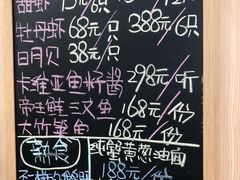 甜虾 15元/只
牡丹虾68元/只 388元/6只
日月贝 38/只
卡维亚鱼籽酱 298元/听
帝王鲑三文鱼 168元/份
大竹荚鱼 168元/份
熟食 纯蟹黄葱油面
188/份